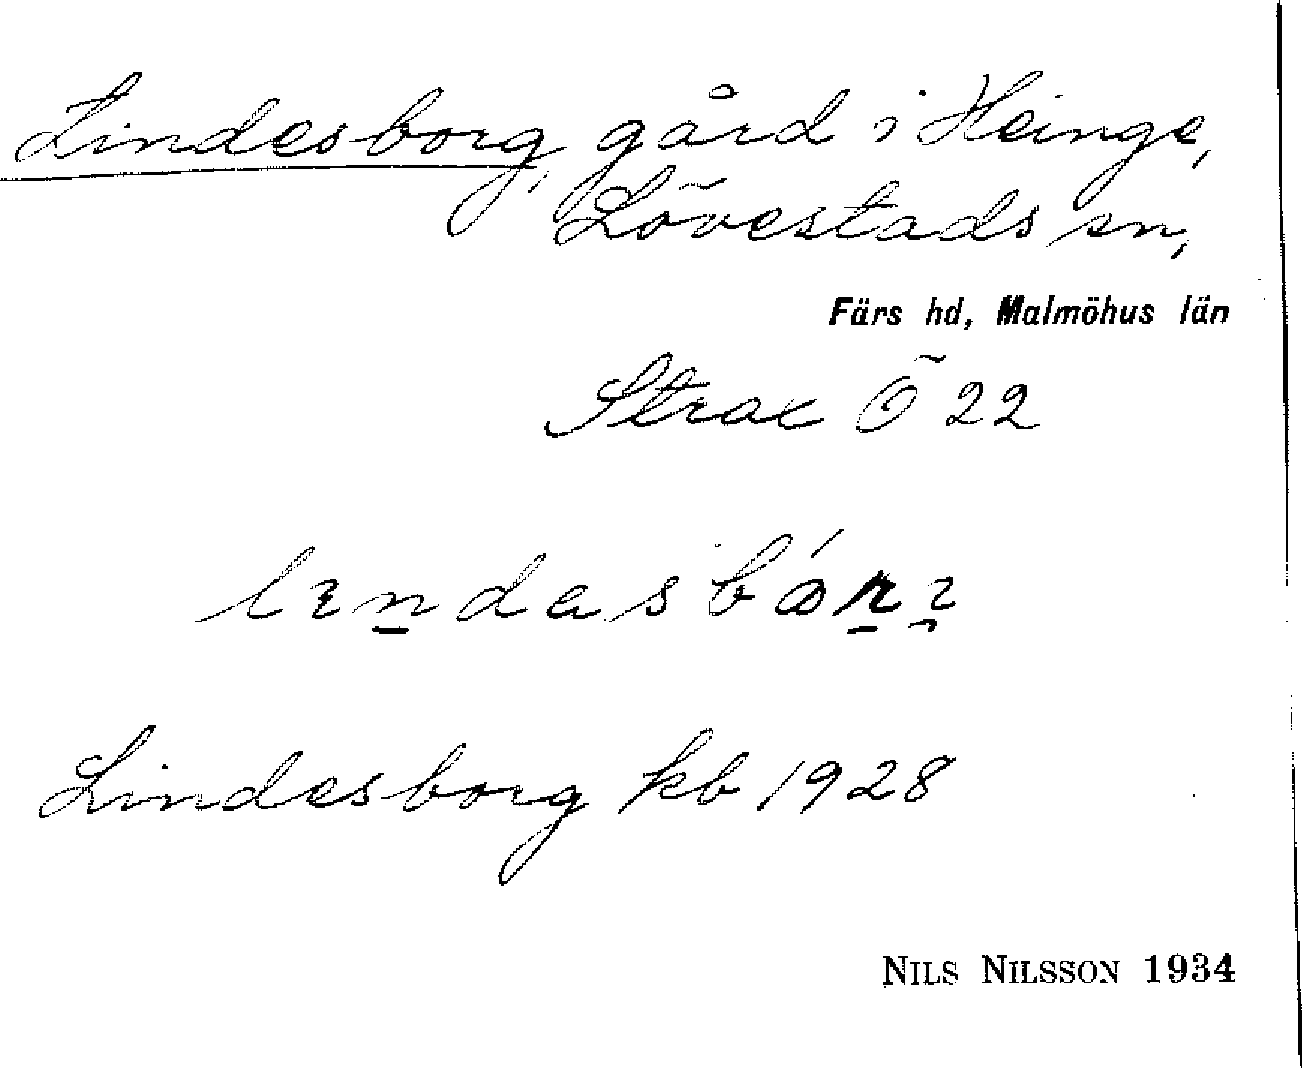 Lindesborg, gård i Heinge,
Lövestads sn,
Färs hd, Malmöhus län
Strax Ö 22
Lindesborg kb 1928
NILS NILSSON 1934